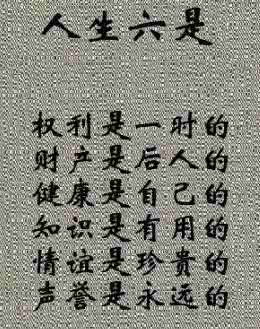 人生六是
权利是一时的
财产是后人的
健康是自己的
知识是有用的
情谊是珍贵的
声誉是永远的